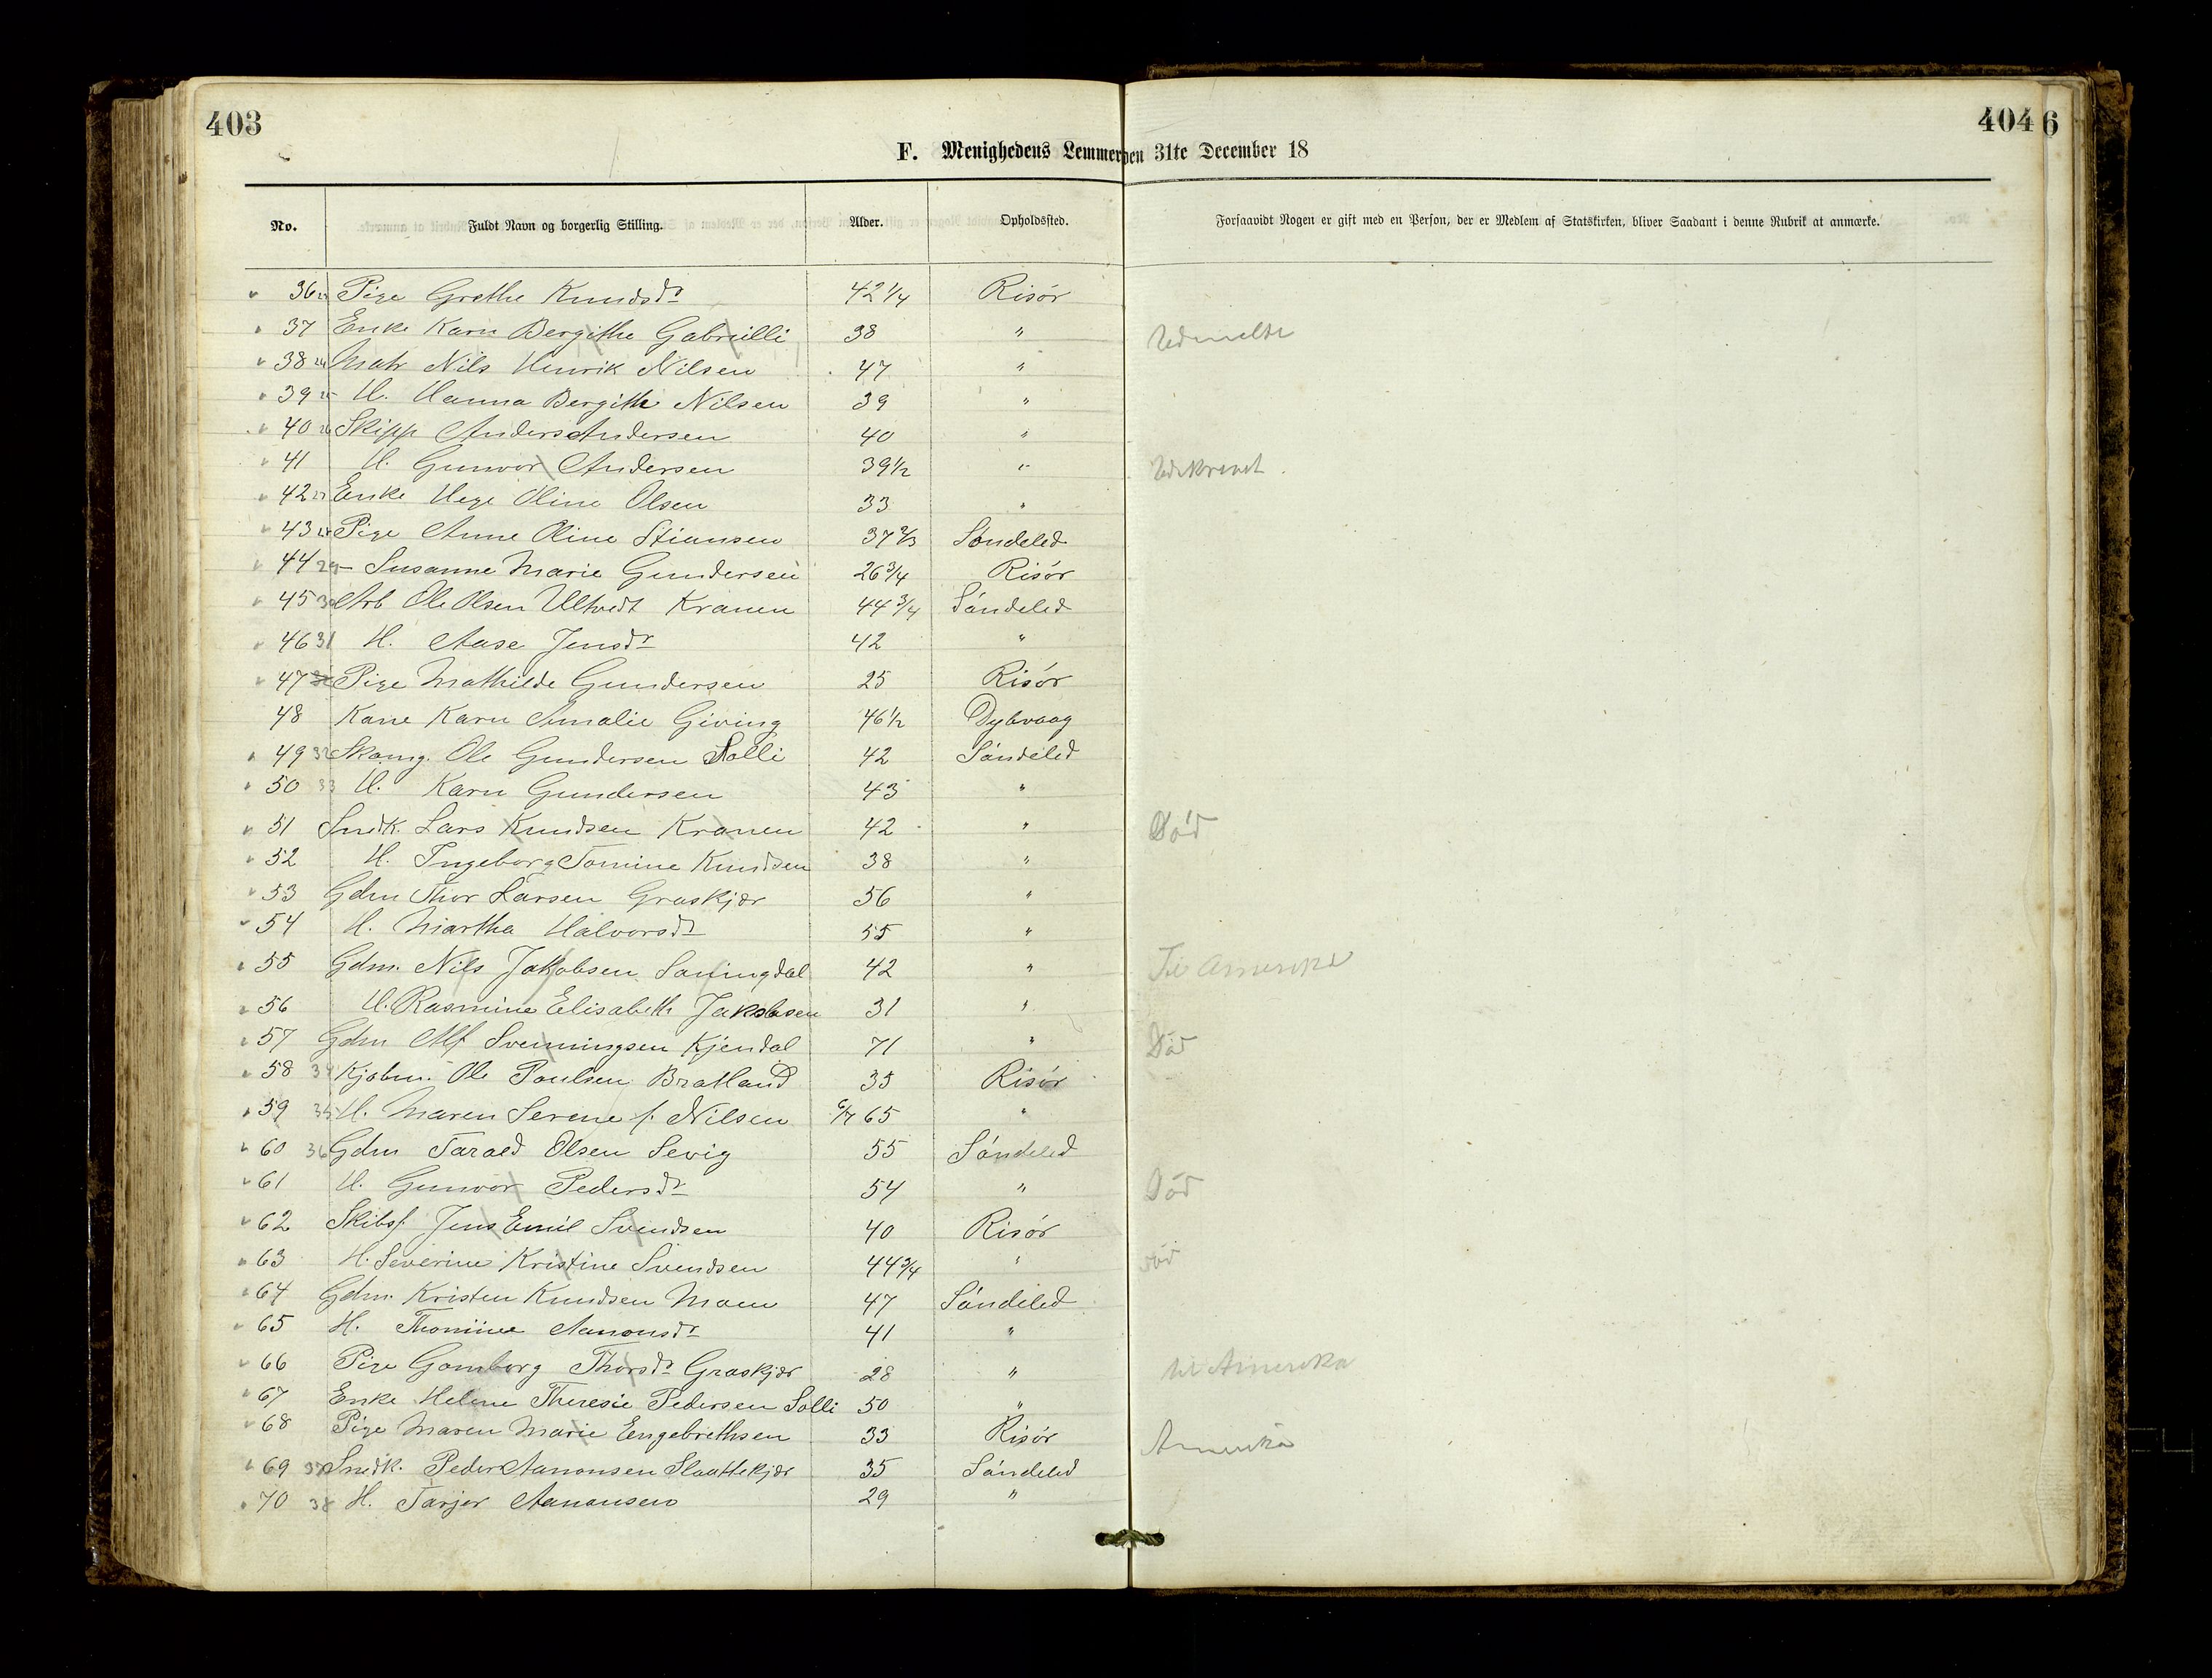 403
404 6
F. Menighedens Lemmer den 31te December 18
No. Fuldt Navn og borgerlig Stilling. Alder. Opholdssted. Forsaavidt Nogen er gift med en Person, der er Medlem af Statskirken, bliver Saadant i denne Rubrik at anmærke.
36 Pige Grethe Knudsdr 42 1/4 Risór
37 Enke Karn Bergithe Gabrielli 38 " Udmeldt
38 24 Matr Nils Henrik Nilsen 47 "
39 25 H. Hanna Bergithe Nilsen 39 "
40 26 Skipp Anders Andersen 40 "
41 H. Gunvor Andersen 39 1/2 " Udskrevet.
42 27 Enke Hege Oline Olsen 33 "
43 28 Pige Anne Oline Stiansen 37 2/3 Sóndeled
44 29 - Susanne Marie Gundersen 26 3/4 Risór
45 30 Arb Ole Olsen Ultvedt Kranen 44 3/4 Sóndeled
46 31 H. Aase Jensdr 42 "
47 Pige Mathilde Gundersen 25 Risór
48 Kone Karn Amalie Giving 46 1/2 Dybvaag
49 32 Skomg. Ole Gundersen Solli 42 Sóndeled
50 33 H. Karn Gundersen 43 "
51 Snedk. Lars Knudsen Kranen 42 " Dód
52 H. Ingeborg Tomine Knudsen 38 "
53 Gdm Thor Larsen Graskjær 56 "
54 H. Martha Halvorsdr 55 "
55 Gdm. Nils Jakobsen 42 " Til Amerika
56 H. Rasmine Elisabeth Jakobsen 31 "
57 Gdm Alf Svenningsen Kjendal 71 " Dód
58 34 Kjøbm. Ole Poulsen Bratland 35 Risór
59 35 H. Maren Serene f. Nilsen 6/7 65 "
60 36 Gdm Tarald Olsen Sevig 55 Sóndeled
61 H. Gunvor Pedersdr 54 " Dód
62 Skibsf. Jens Emil Svendsen 40 Risór
63 H. Severine Kristine Svendsen 44 3/4 " dód
64 Gdm. Kristen Knudsen Moen 47 Sóndeled
65 H. Thomine Aanonsdr 41 "
66 Pige Gomborg Thorsdr Graskjær 28 " til Amerika
67 Enke Helene Theresie Pedersen Solli 50 "
68 Pige Maren Marie Engebrethsen 33 Risór Amerika
69 37 Snedk. Peder Aanonsen Slaattekjær 35 Sóndeled
70 38 H. Tarjer Aanonsen 29 "